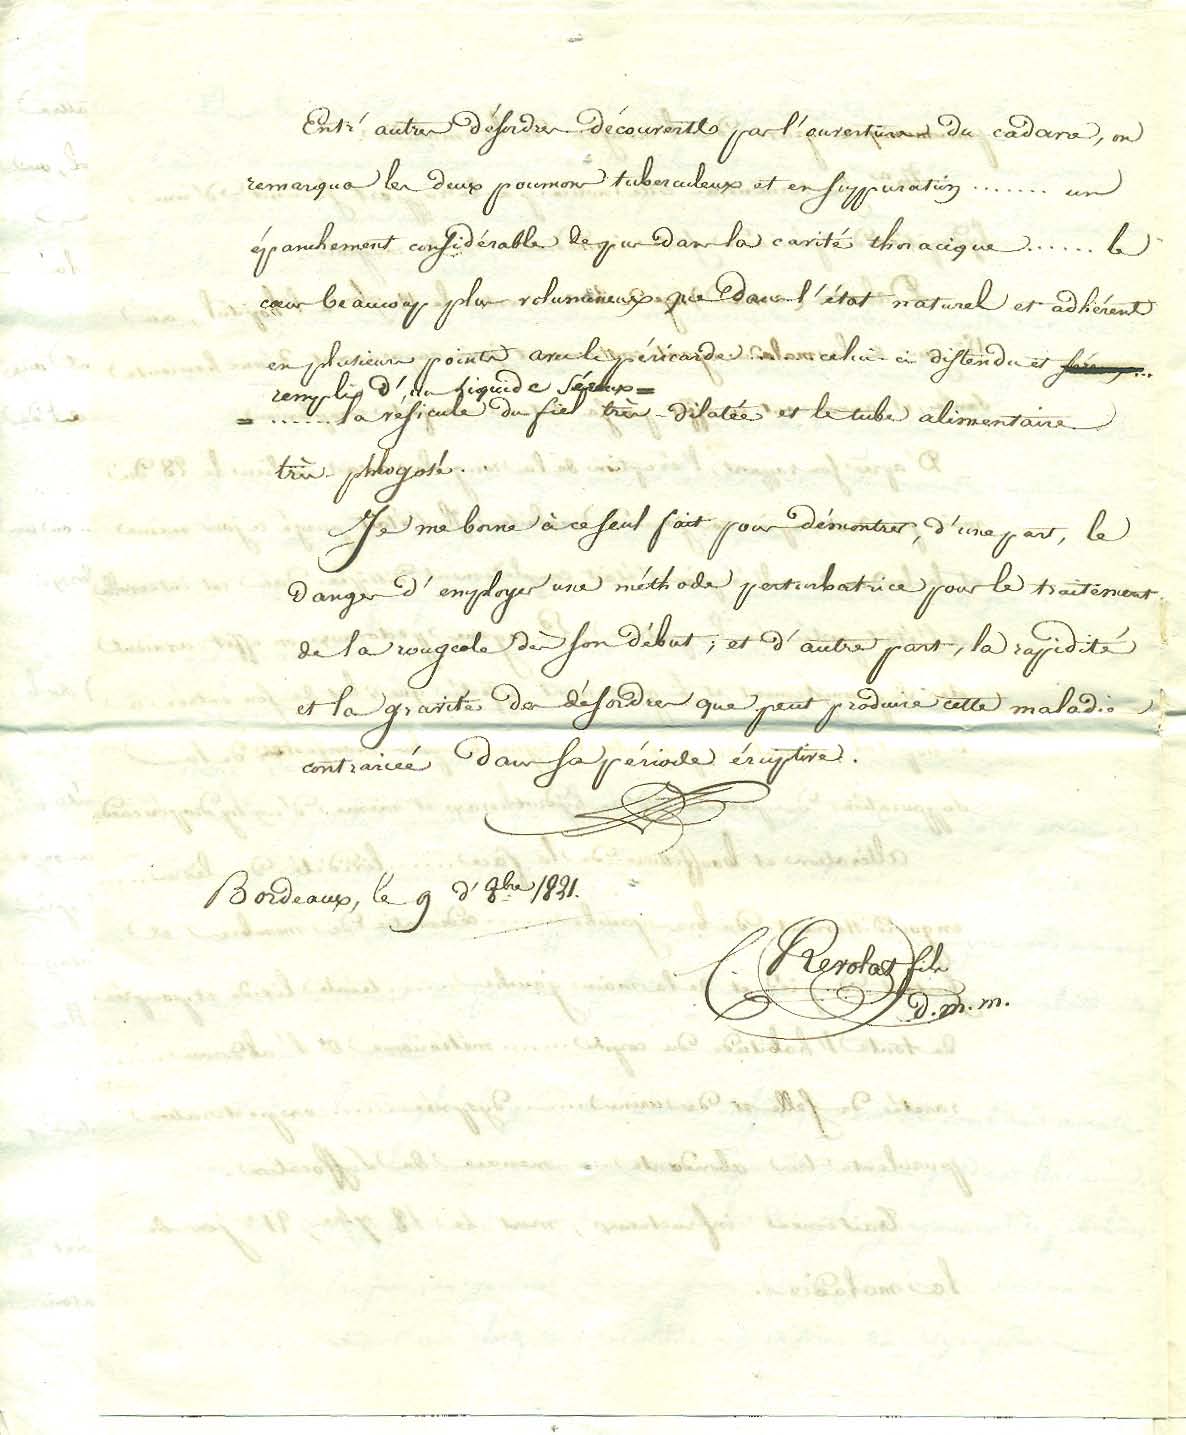 Entr'autres désordres découverts par l'ouverture du cadavre, on
remarqua les deux poumons tuberculeux et en suppuration ....... un
épanchement considérable de pus dans la cavité thoracique ...... le
cœur beaucoup plus volumineux que dans l'état naturel et adhérent
en plusieurs points avec le péricarde .... celui-ci distendu et
remplis d'un liquide séreux =
= ...... la vésicule du fiel très-dilatée et le tube alimentaire
très-phlogosé.
Je me borne à ce seul fait pour démontrer, d'une part, le
danger d'employer une méthode perturbatrice pour le traitement
de la rougeole dès son début ; et d'autre part, la rapidité
et la gravité des désordres que peut produire cette maladie
contrariée dans sa période éruptive.
Bordeaux, le 9 d'8bre 1821.
C. Revolat fils
d. m. m.